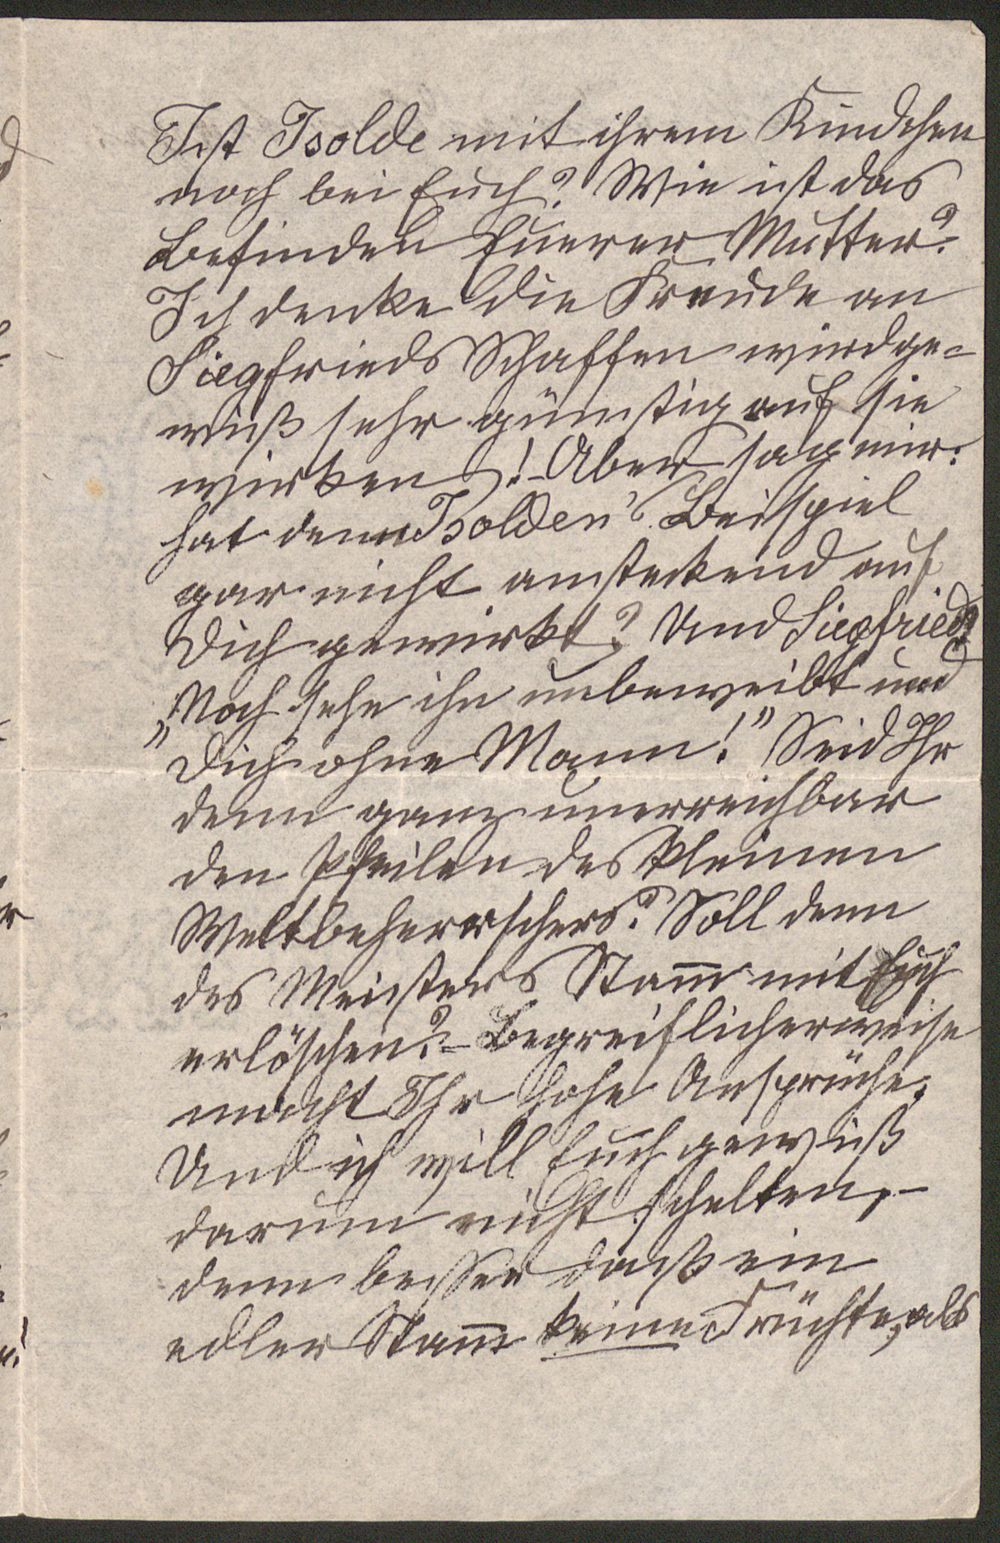 Ist Isolde mit ihrem Kindchen
noch bei Euch? Wie ist das
Befinden Euerer Mutter?
Ich denke die Freude an
Siegfrieds Schaffen wird ge-
wiß sehr günstig auf sie
wirken! – Aber sag mir:
hat denn Isolden's Beispiel
gar nicht ansteckend auf
Dich gewirkt? Und Siegfried?
„Noch sehe ihn unbeweibt und
Dich ohne Mann!" Seid Ihr
denn ganz unerreichbar
den Pfeilen des kleinen
Weltbeherrschers? Soll denn
des Meisters Stam̅ mit Euch
erlöschen? – Begreiflicherweise
macht Ihr hohe Ansprüche;
Und ich will Euch gewiß
darum nicht schelten, –
denn besser daß ein
edler Stam̅ keine Früchte, als